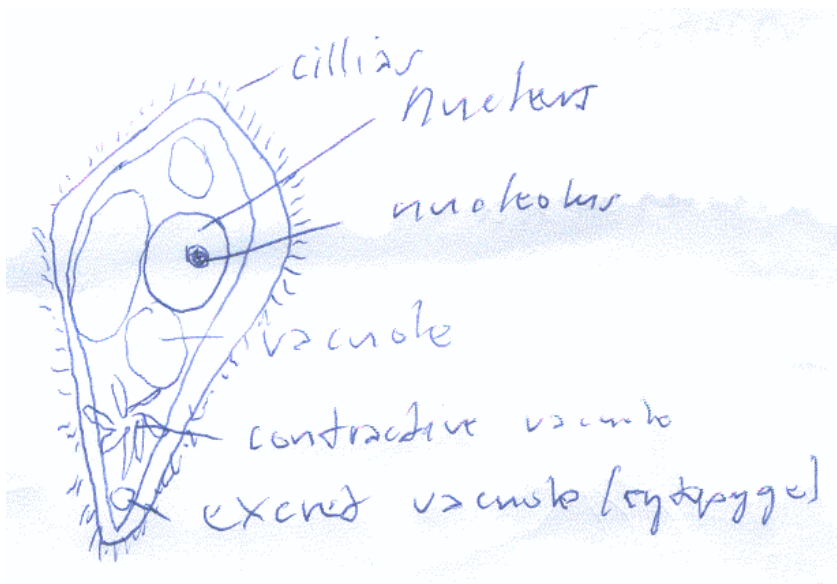 cillias
nucleus
nucleolus
vacuole
contractive vacuole
excret vacuole (cytopyge)